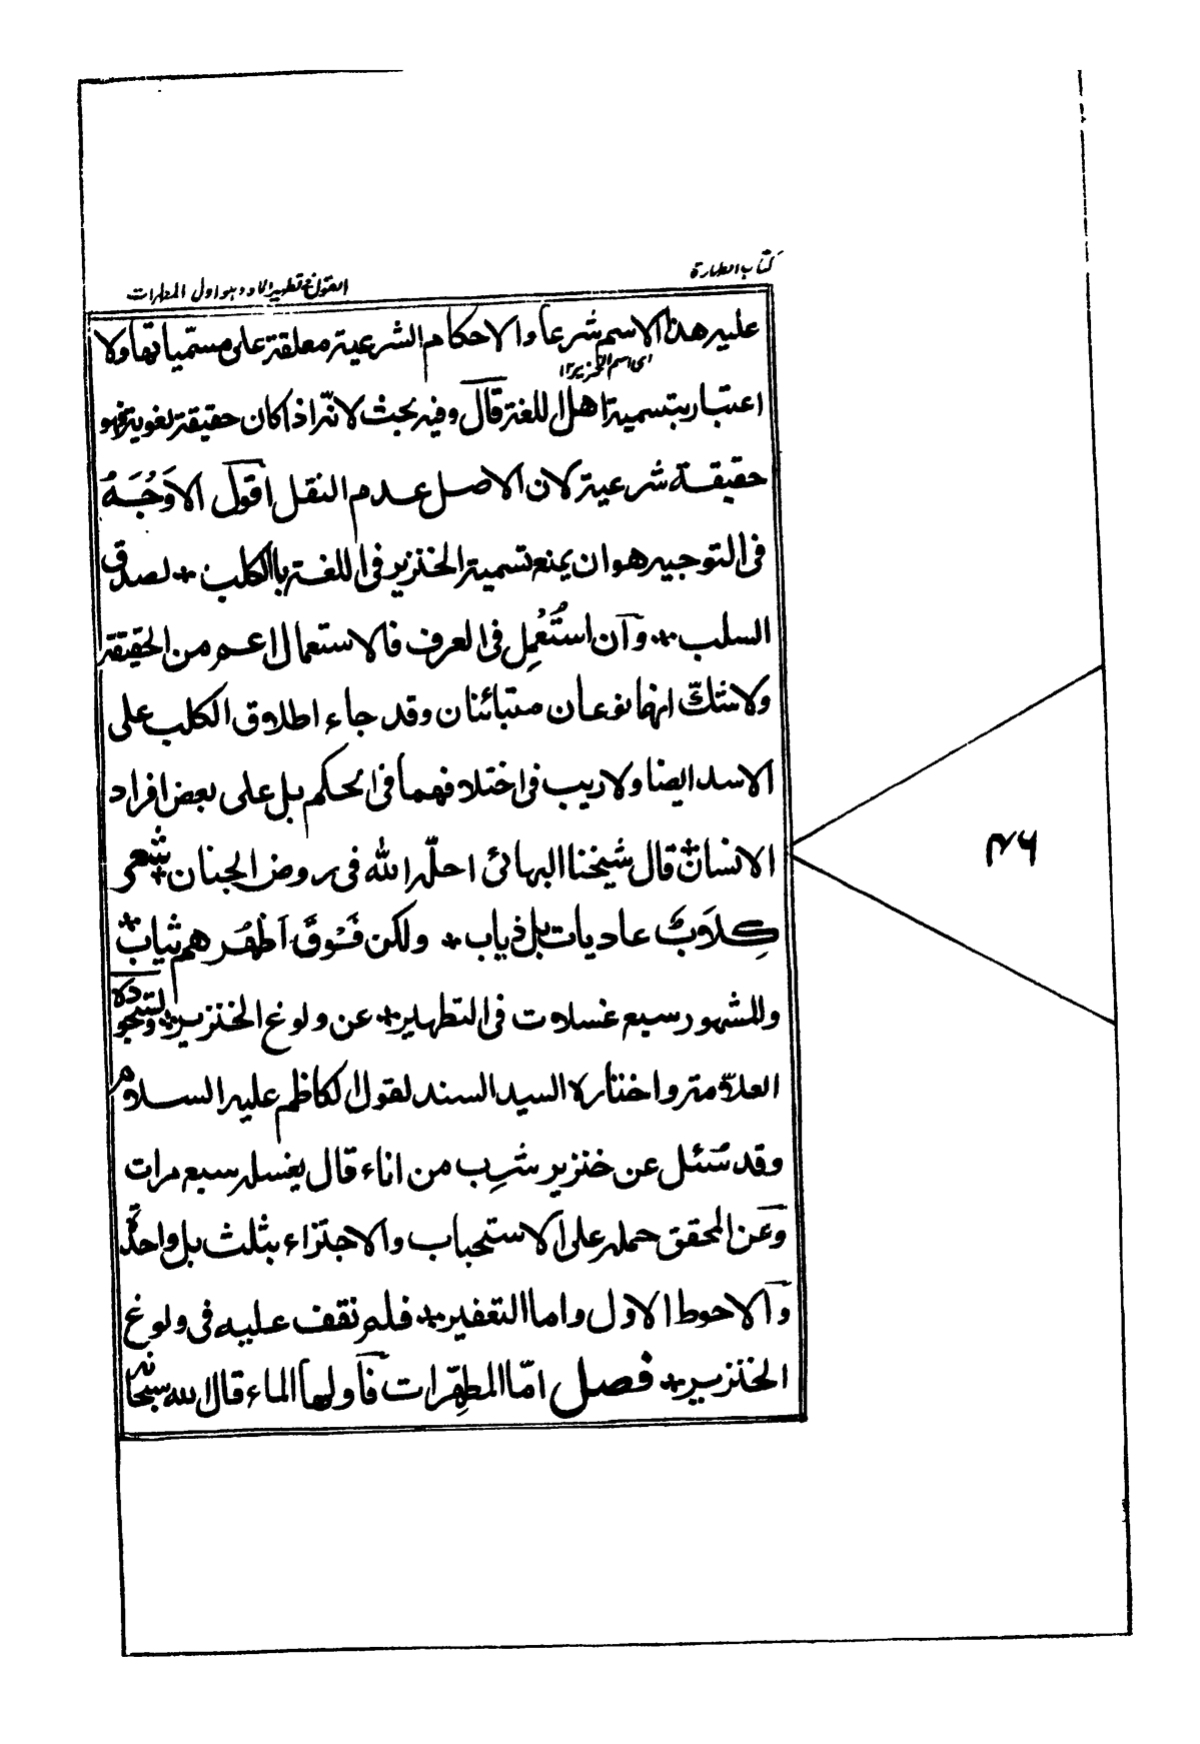 كتاب الطهارة
القول في تطهير الماء وهو اول المطهرات
عليه هذا الاسم شرعا والاحكام الشرعية معلقة على مسمياتها ولا
اى اسم الخنزير ١٢
اعتبار بتسمية اهل اللغة قال وفيه بحث لانّه اذا كان حقيقة لغوية فهو
حقيقة شرعية لان الاصل عدم النقل اقول الاَوْجَهُ
فى التوجيه هو ان يمنع تسمية الخنزير فى اللغة بالكلب لصدق
السلب وآن استُعْمِل فى العرف فالاستعمال اعم من الحقيقة
ولا شكّ انهما نوعان متبائنان وقد جاء اطلاق الكلب على
الاسد ايضا ولا ريب فى اختلافهما فى الحكم بل على بعض افراد
الانسان قال شيخنا البهائى احلّه الله فى روض الجنان شعر
كِلَابٌ عاديات بل ذياب ولكن فَوْقَ اَظْهُرهم ثياب
وللمشهور سبع غسلات فى التطهير عن ولوغ الخنزير
العلاّمة واختاره السيد السند لقول الكاظم عليه السلام
وقد سُئل عن خنزير شرِب من اناء قال يغسله سبع مرات
وعن المحقق حمله على الاستحباب والاجتزاء بثلث بل واحدة
والاحوط الاول واما التعفير فلم نقف عليه فى ولوغ
الخنزير فصل امّا المطهّرات فاولها الماء قال الله سبحانه
٤٦